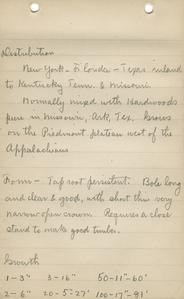 Distribution
New York - Florida - Texas inland
to Kentucky Tenn. & Missouri.
Normally mixed with Hardwoods
pure in Missouri, Ark, Tex. Grows
on the Piedmont plateau west of the
Appalachians
Form - Tap root persistent. Bole long
and clear & good, with short thin very
narrow open crown. Requires a close
stand to make good timber.
Growth
1 - 3" 3 - 16" 50 - 11" - 60'
2 - 6" 20 - 5" - 27' 100 - 17" - 91'